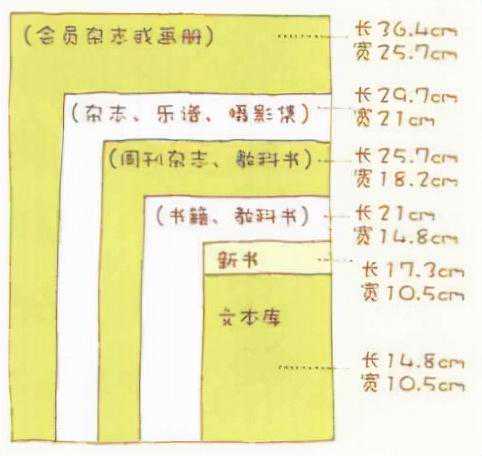 (会员杂志或画册)
长36.4cm
宽25.7cm
(杂志、乐谱、摄影集)
长29.7cm
宽21cm
(周刊杂志、教科书)
长25.7cm
宽18.2cm
(书籍、教科书)
长21cm
宽14.8cm
新书
长17.3cm
宽10.5cm
文本库
长14.8cm
宽10.5cm